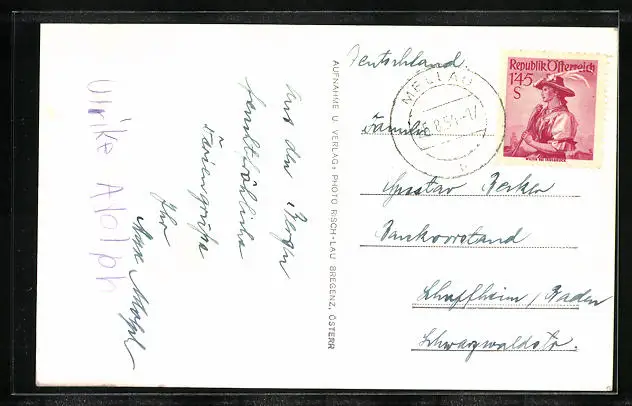 Aus den Bergen
herzliche
Feriengrüße
Ihr
Adolph
Ulrike Adolph
AUFNAHME U. VERLAG: PHOTO RISCH-LAU BREGENZ, ÖSTERR
Deutschland
MELLAU
Republik Österreich
1'45
S
Familie
Gustav Becker
Bankvorstand
Schopfheim / Baden
Schwarzwaldstr.